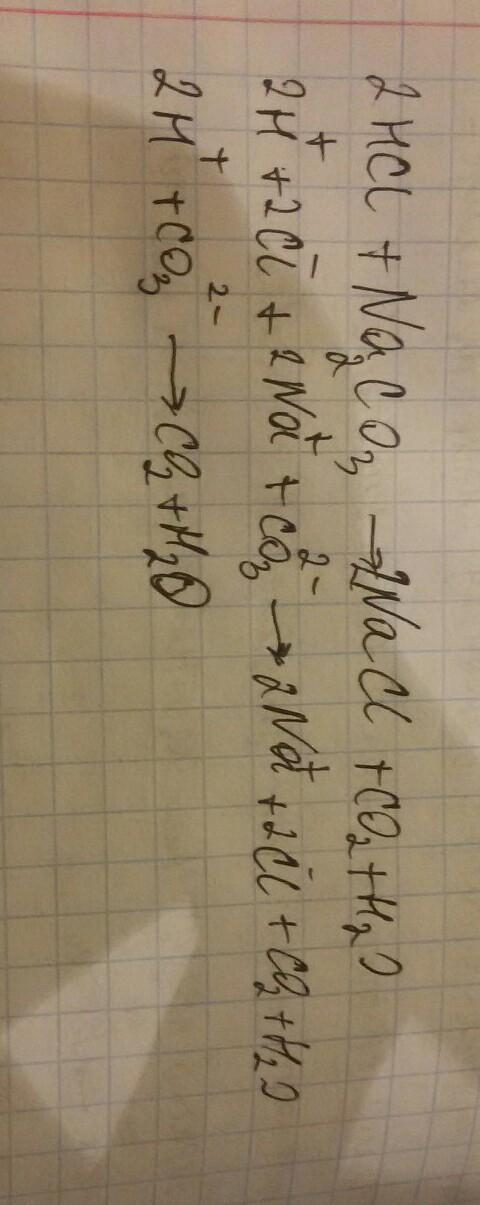 2HCl + Na₂CO₃ → 2NaCl + CO₂ + H₂O
2H⁺ + 2Cl⁻ + 2Na⁺ + CO₃²⁻ → 2Na⁺ + 2Cl⁻ + CO₂ + H₂O
2H⁺ + CO₃²⁻ → CO₂ + H₂O